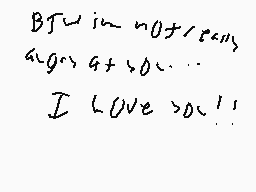 BTW im not really
angry at you...
I Love you!!